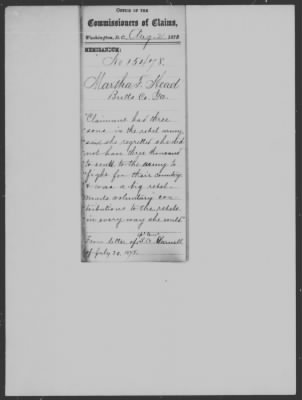 OFFICE OF THE
Commissioners of Claims,
Washington, D. C. Aug. 2, 187
MEMORANDUM:
No 
Martha F. Head
Butts Co. Ga.
"Claimant has three
sons in the rebel army,
said she regretted she did
not have three thousand
to send to the army to
fight for their country
& was a big rebel
made voluntary con
tributions to the rebels
in every way she could"
From letter of
of July 30, 187